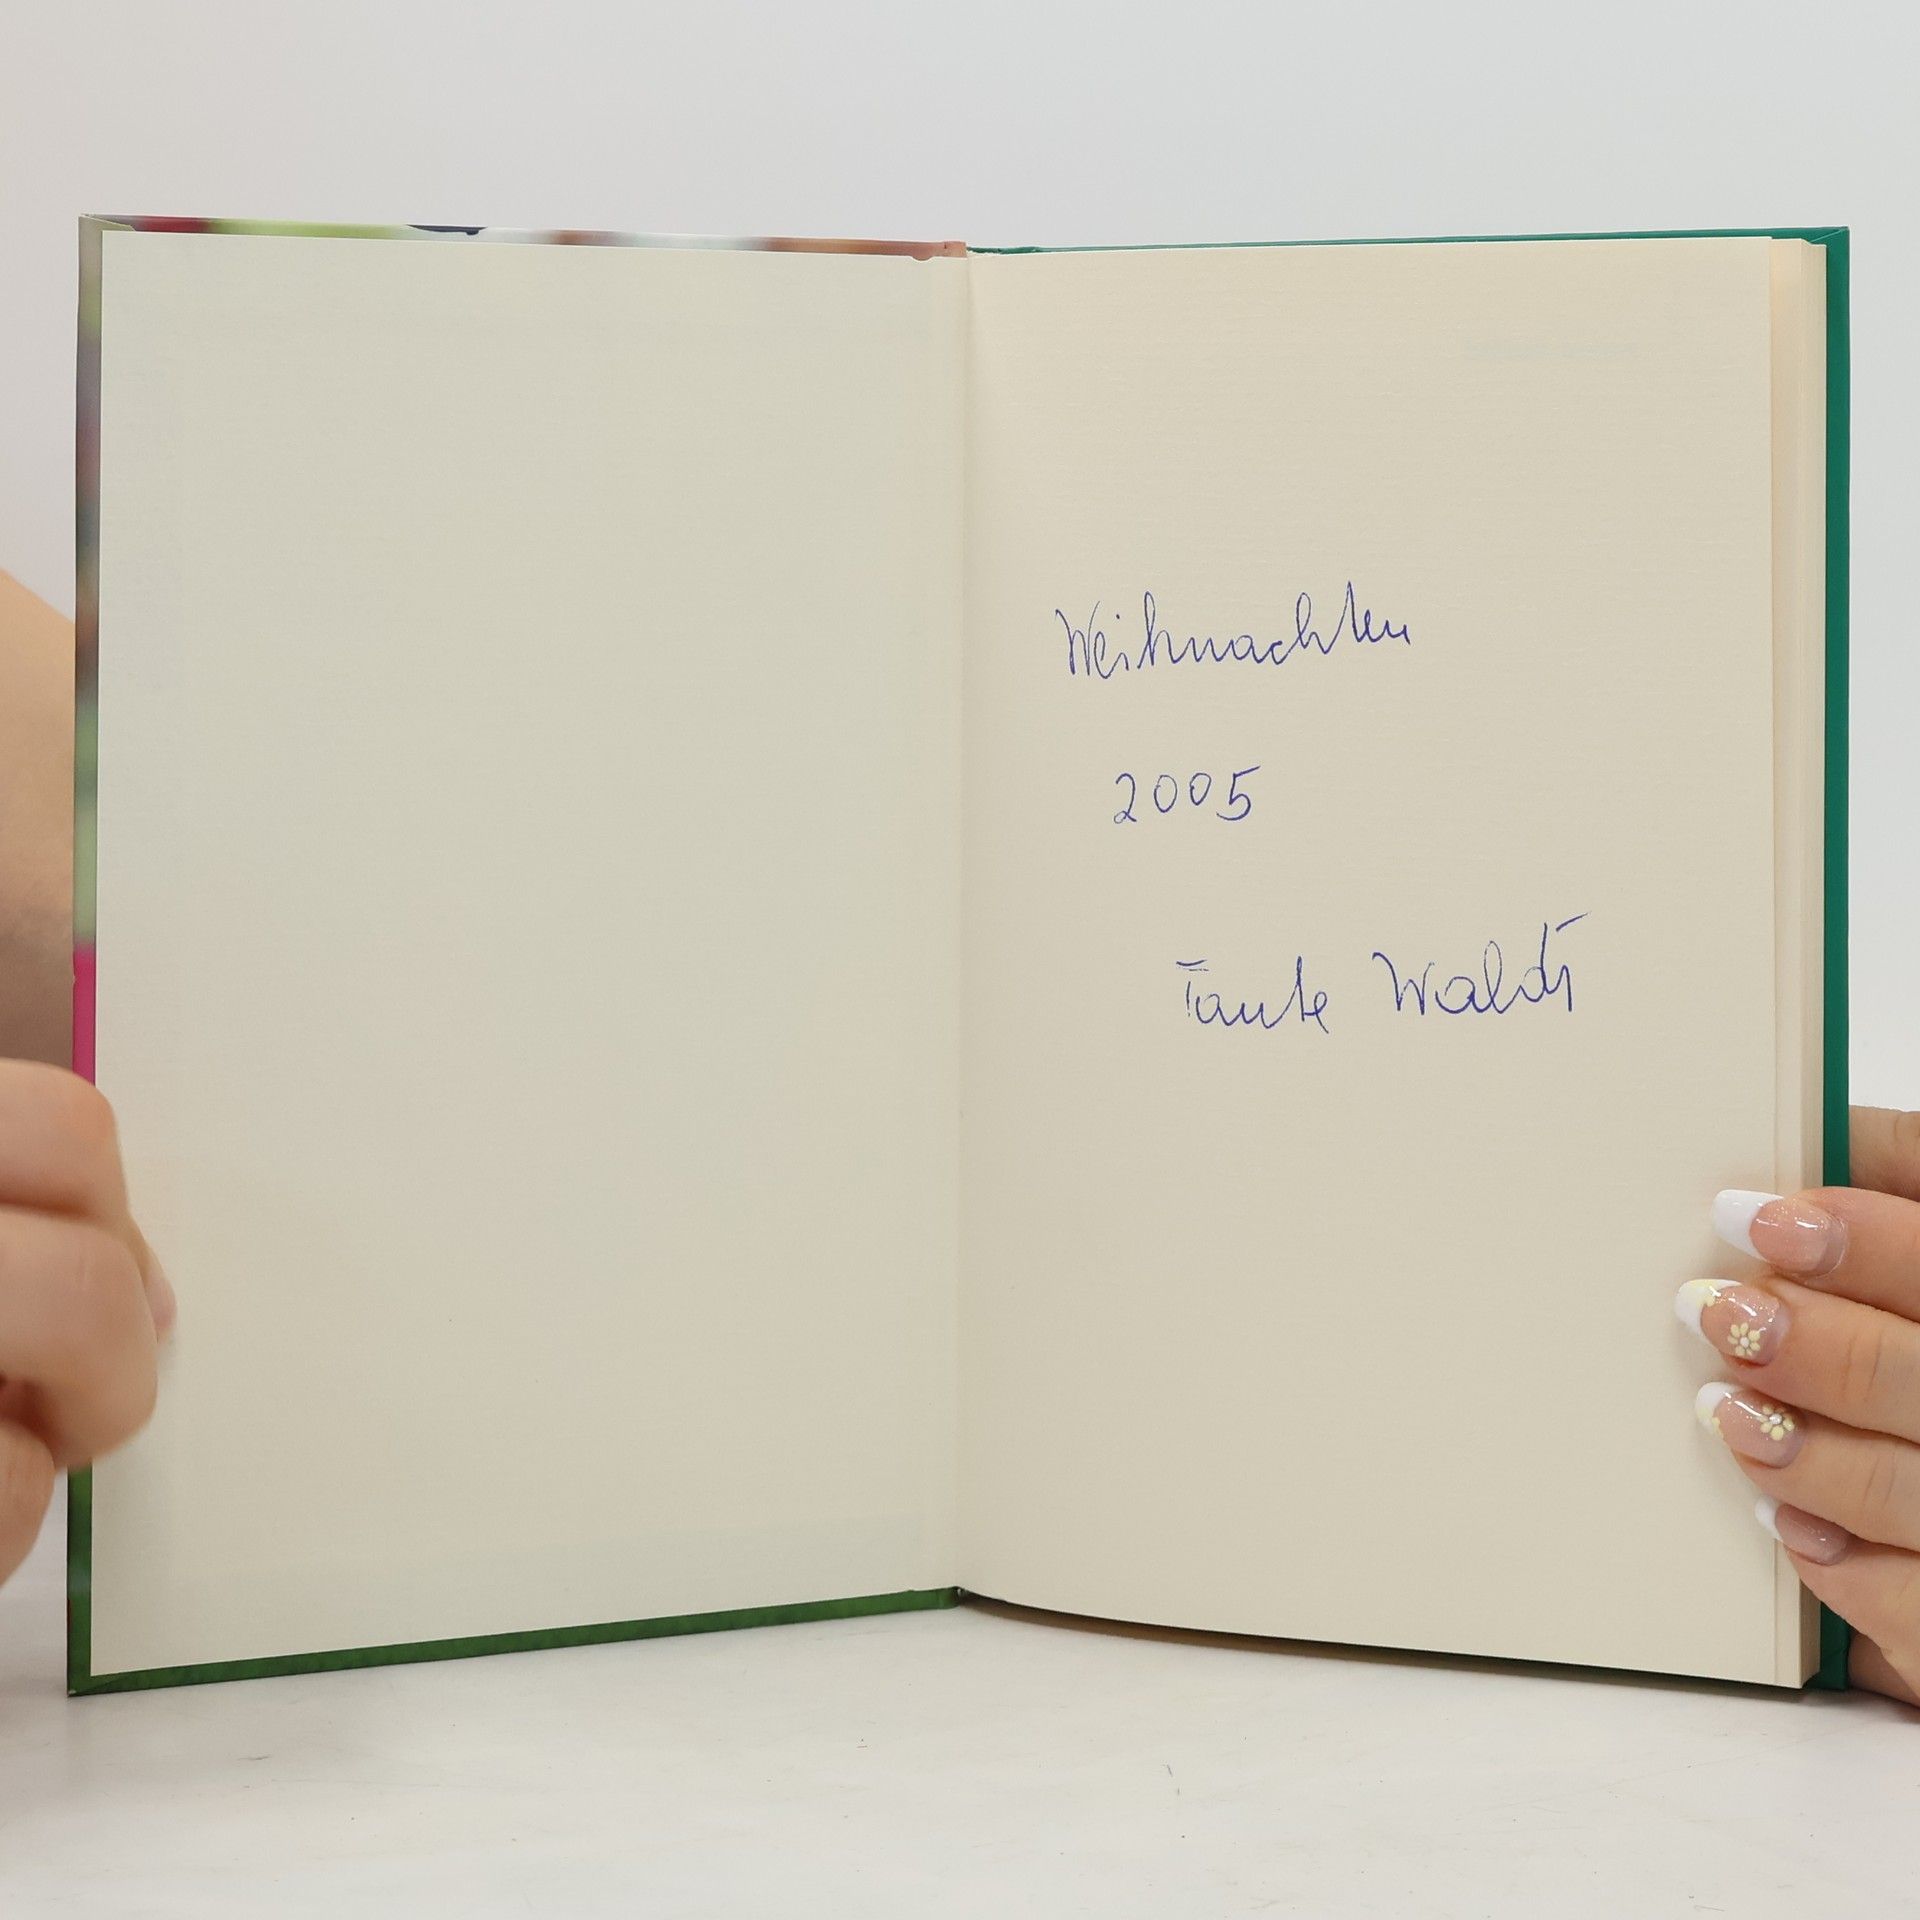 Weihnachten
2005
Tante Waldt